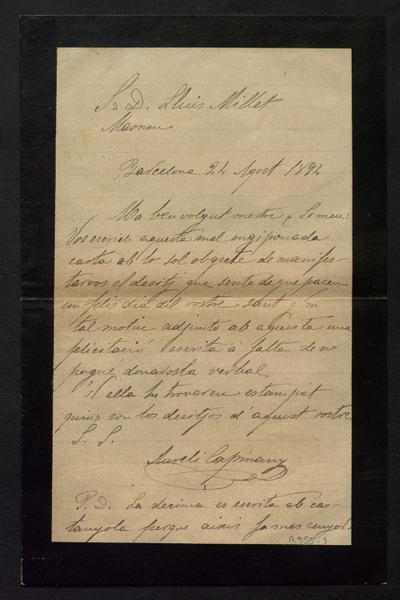 Sr. D. Lluis Millet
Masnou
Barcelona 24 Agost 1892
Mo benvolgut mestre y Sr meu:
Vos escrich aquesta mal engiponada
carta ab lo sol objecte de manifes-
tarvos el desitj que sento de que passeu
un feliç dia del vostre sant y
tal motiu adjunto ab aquesta una
felicitació escrita á falta de no
poguer donarosla verbal.
ella hi trovareu estampat
quins son los desitjos d'aquest vostre
S. S.
Aureli Capmany
P. D. La decima es escrita ab cas-
tanyola perque aixis fa mes
R955.1